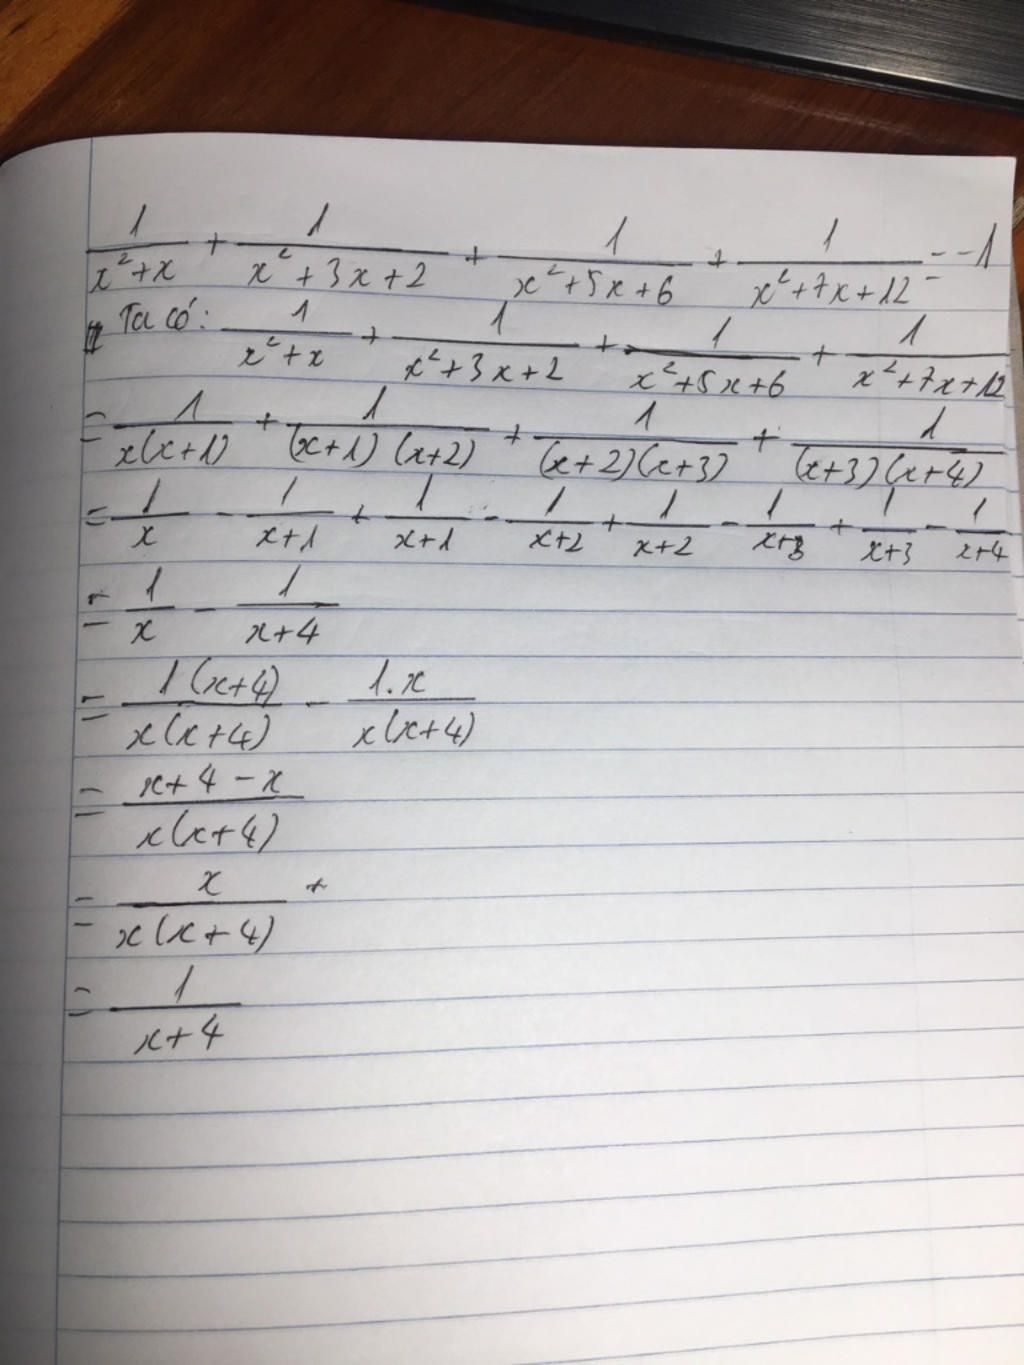 1/(x²+x) + 1/(x²+3x+2) + 1/(x²+5x+6) + 1/(x²+7x+12) = -1
Ta có: 1/(x²+x) + 1/(x²+3x+2) + 1/(x²+5x+6) + 1/(x²+7x+12)
= 1/(x(x+1)) + 1/((x+1)(x+2)) + 1/((x+2)(x+3)) + 1/((x+3)(x+4))
= 1/x - 1/(x+1) + 1/(x+1) - 1/(x+2) + 1/(x+2) - 1/(x+3) + 1/(x+3) - 1/(x+4)
= 1/x - 1/(x+4)
= 1(x+4)/(x(x+4)) - 1.x/(x(x+4))
= (x+4-x)/(x(x+4))
= x/(x(x+4)) +
= 1/(x+4)